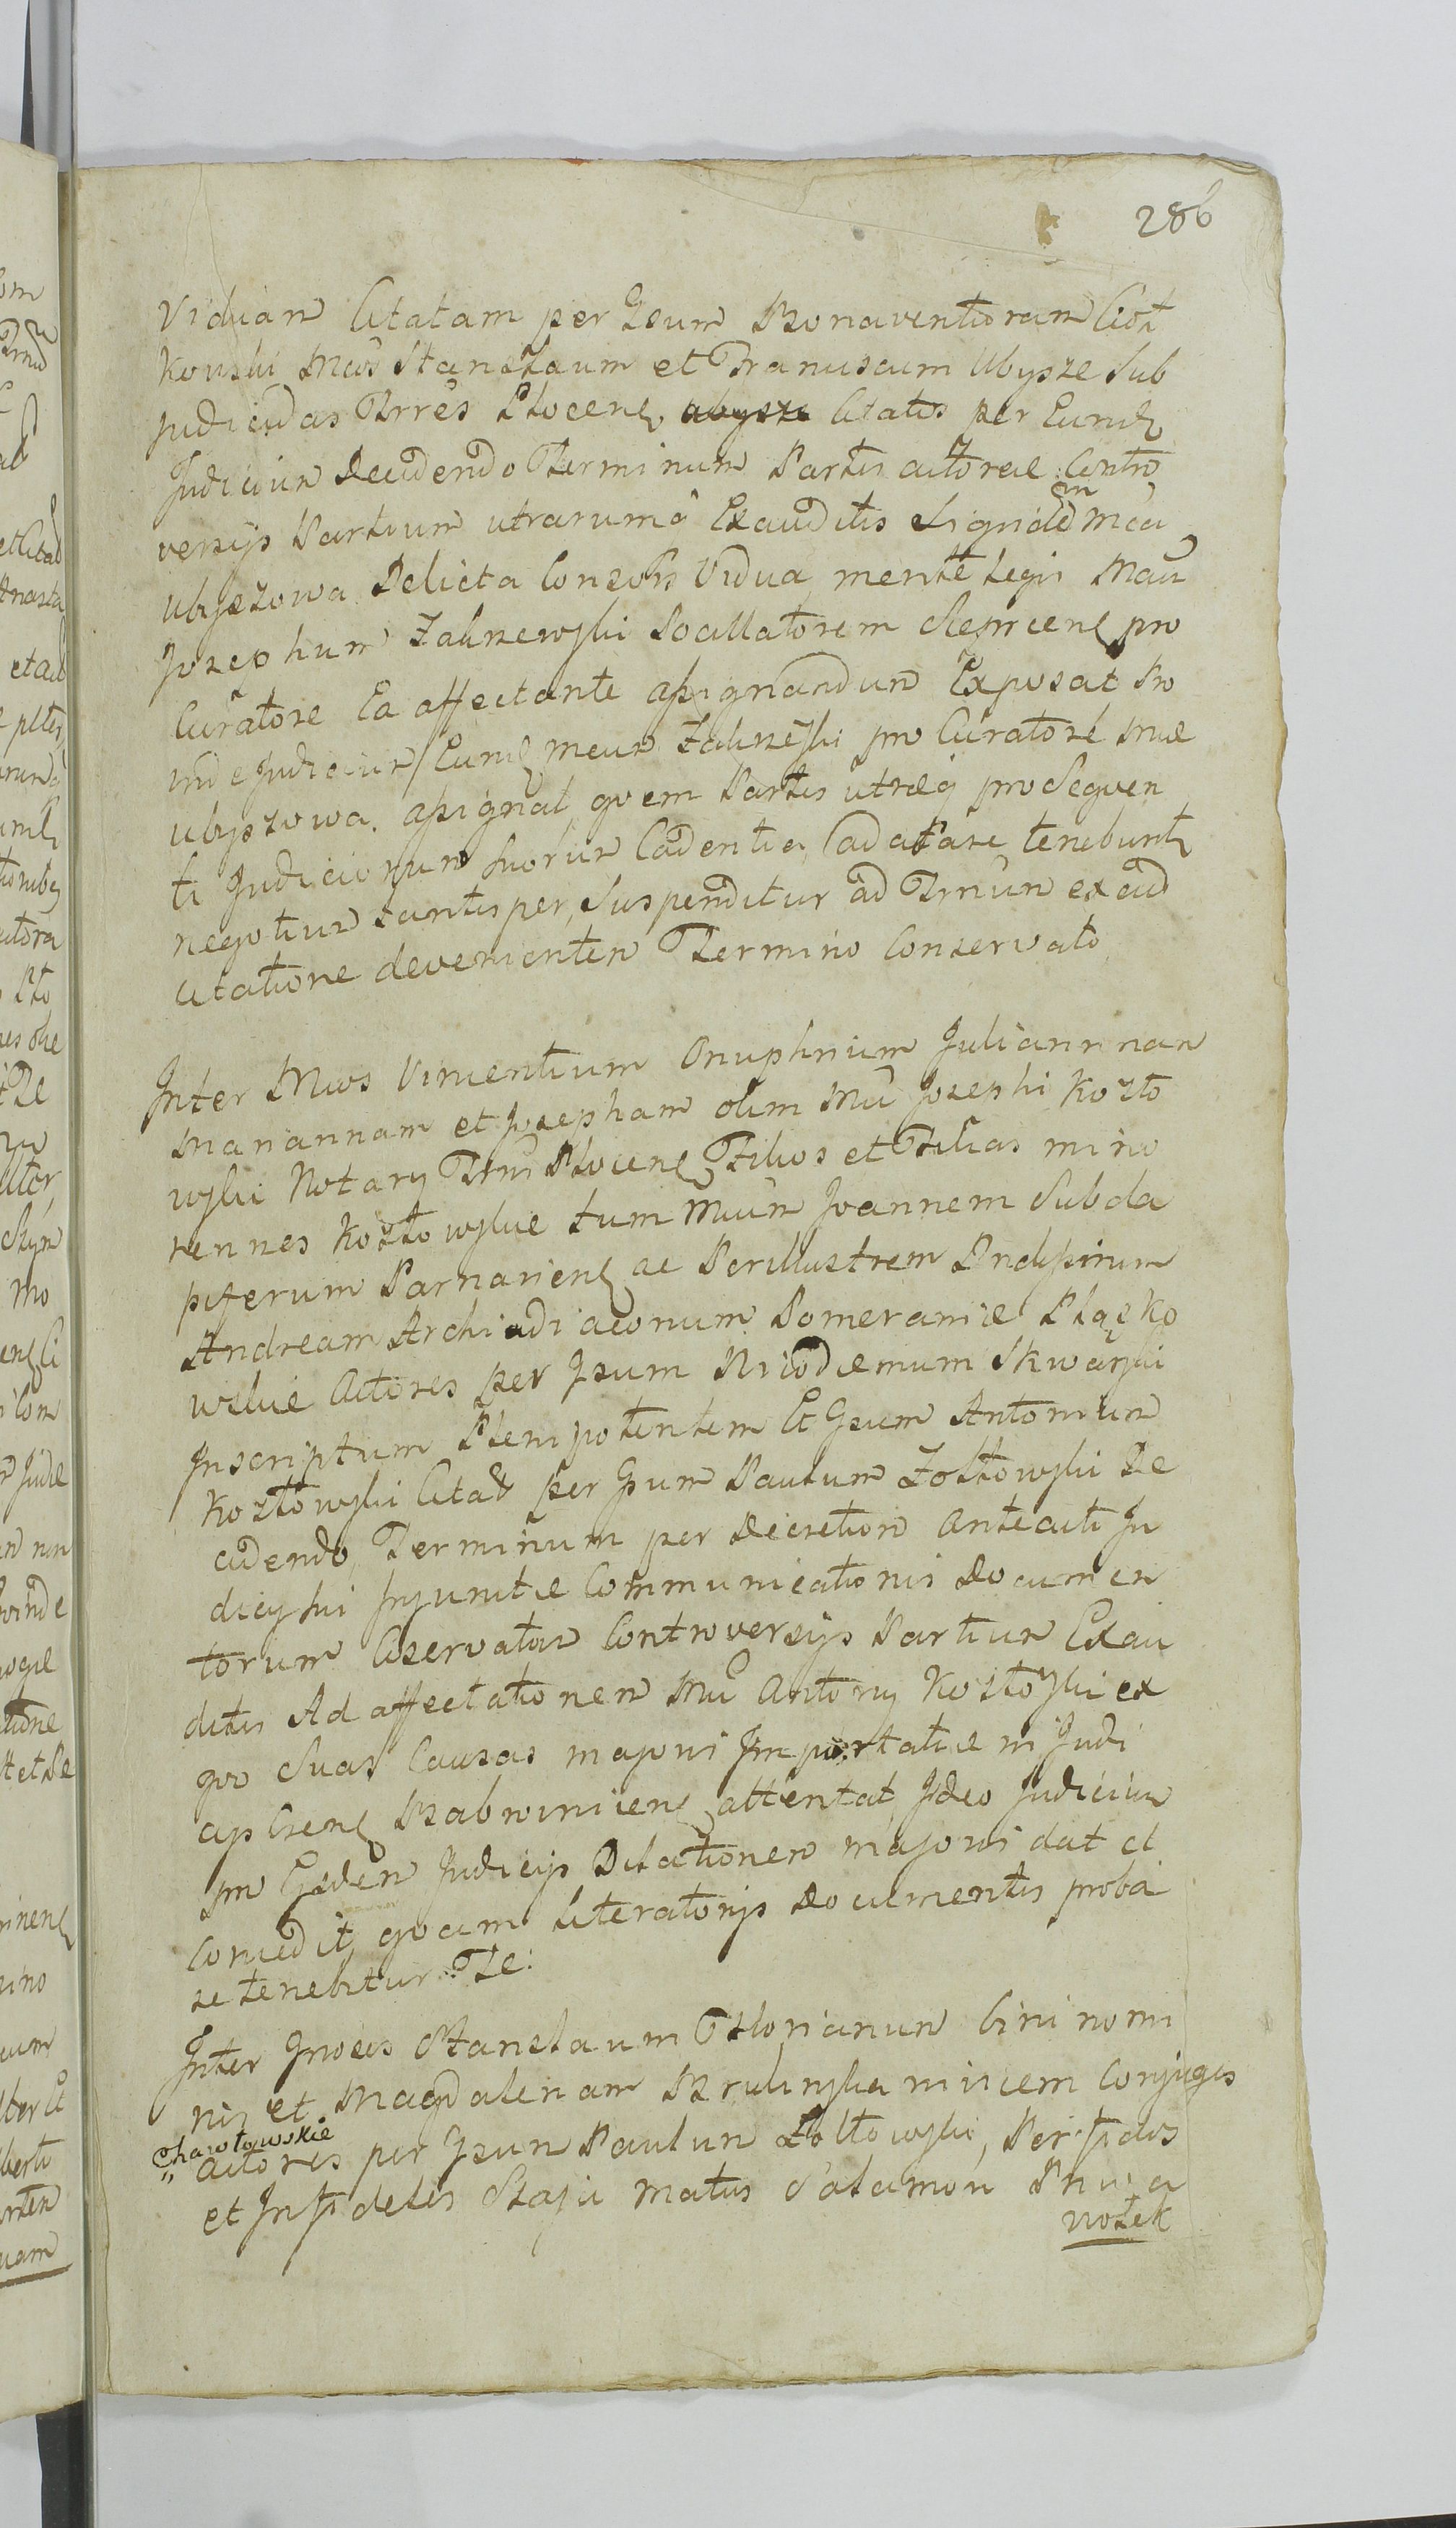 286
Viduam Citatam per Gsum Bonaventuram Ciot
kowski Mcos Stanislaum et Franciscum Ubysze Sub
Judicidas Trres Plocens Citatis per Eund
Judicium Decidendo Terminum Partis actoreae Contro
versijs Partium utrarumq Exauditis Siquidem Mca
Ubyszowa Relicta Consortis Vidua mente Legis Mcum
Josephum Zakrzewski Pocillatorem Sieprcens pro
Curatore Ea affectante assignandum Exposcat Pro
inde Judicium Eund Mcum Zakrzeski pro Curatore Mcae
Ubyszowa assignat, quem Partes utraeq pro Sequen
ti Judiciorum Suorum Cadentia, adcitare tenebunt
negotium tantisper Suspenditur ad Trnum ex ad
citatione devenienten Termino Conservato
Inter Mcos Vincentium Onuphrium Juliannan
Mariannam et Josepham olim Mci Josephi Kozło
wski Notarij Trris Plocens Filios et Filias mino
rennes Kozłowskie tum Mcum Joannem Subda
piferum Parnaviens ac Perillustrem Rndissimum
Andream Archidiaconum Pomeraniae Pląsko
wskie Actores per Gsum Nicodemum Skwarski
Inscriptum Plenipotentem Et Gsum Antonium
Kozłowski Citat per Gsum Paulum Zołtowski De
cidendo Terminum per Decretum Anteacti Ju
dicij sui Injunctae Communicationis Documen
torum Conservatum Controversijs Partium Exau
ditis Ad affectationem Mci Antonij Kozłoski ex
quo Suas Causas majoris Importatiae in Judi
attentat Ideo Judicium
pro Eisdem Judicijs Dilationem majoris dat et
Concedit quam Literatorijs Documentis proba
re tenebitur Te:
Inter Gnosos Stanislaum Florianum bini nomi
nis et Magdalenam Brulinska invicem Conjuges
Chawłowskie
Actores per Gsum Paulum Zołtowski, Perfidos
et Infideles Szaja Matus Salamon
nożek